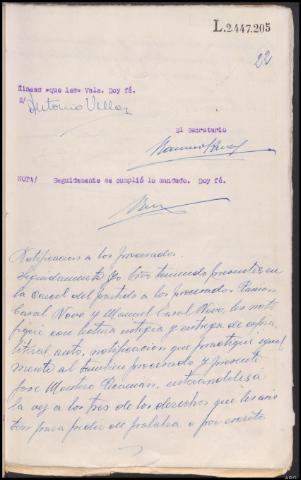 L.2447.205
22
líneas «que les» Vale. Doy fé.
E/
Antonio Villar
El Secretario
NOTA/ Seguidamente se cumplió lo mandado. Doy fé.
Notificacion a los procesados
Seguidamente yo teniendo presentes en
la Carcel del partido a los procesados Ramon
Casal Novo y Manuel Casal Novo, les noti
fiqué con lectura integra y entrega de copia
literal, auto, notificacion que practiqué igual
mente al tambien procesado y presente
Jose enterandoles a
la vez a los tres de los derechos que les asis
ten para pedir de palabra o por escrito